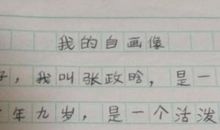 我的自画像
，我叫张政晗，是一
年九岁，是一个活泼